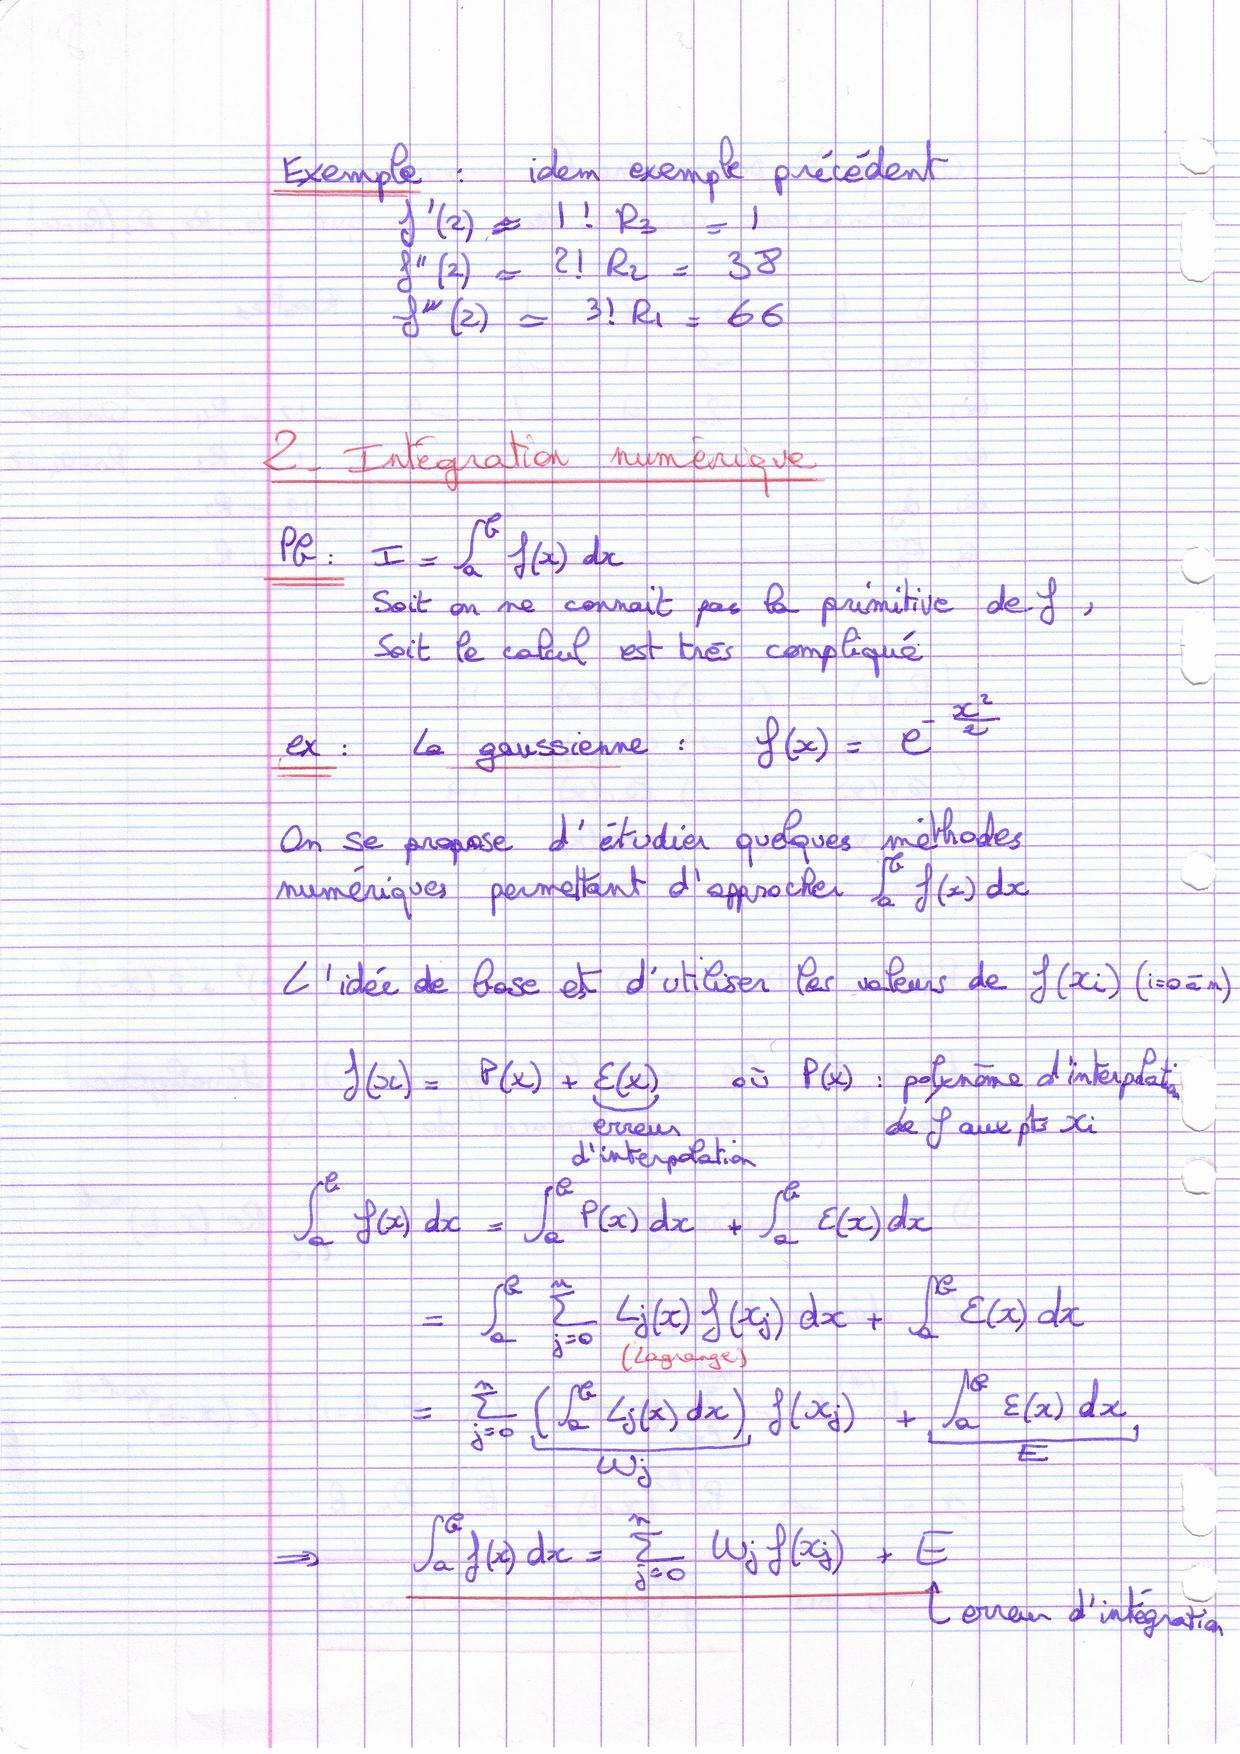 Exemple : idem exemple précédent
f'(2) ≃ 1! R₃ = 1
f''(2) ≃ 2! R₂ = 38
f'''(2) ≃ 3! R₁ = 66
2_ Intégration numérique
Pb : I = ∫ₐᵇ f(x) dx
Soit on ne connait pas la primitive de f,
Soit le calcul est très compliqué
ex : La gaussienne : f(x) = e^(-x²/2)
On se propose d'étudier quelques méthodes
numériques permettant d'approcher ∫ₐᵇ f(x) dx
L'idée de base est d'utiliser les valeurs de f(xi) (i=0 à n)
f(x) = P(x) + ε(x) où P(x) : polynôme d'interpolation
erreur de f aux pts xi
d'interpolation
∫ₐᵇ f(x) dx = ∫ₐᵇ P(x) dx + ∫ₐᵇ ε(x) dx
= ∫ₐᵇ Σ_{j=0}^{n} Lj(x) f(xj) dx + ∫ₐᵇ ε(x) dx
(Lagrange)
= Σ_{j=0}^{n} (∫ₐᵇ Lj(x) dx) f(xj) + ∫ₐᵇ ε(x) dx
Wj E
⇒ ∫ₐᵇ f(x) dx = Σ_{j=0}^{n} Wj f(xj) + E
↑ erreur d'intégration